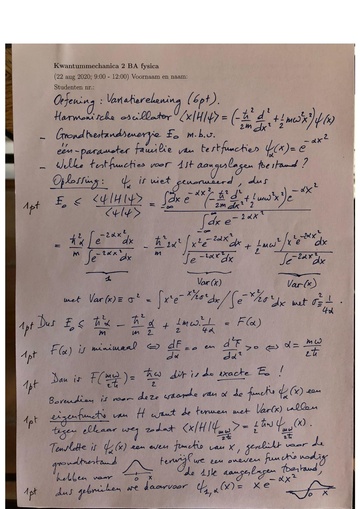 Kwantummechanica 2 BA fysica
(22 aug 2020; 9:00 - 12:00) Voornaam en naam:
Studenten nr.:
Oefening: Variatierekening (6pt).
Harmonische oscillator ⟨x|H|ψ⟩ = (-ħ²/2m d²/dx² + ½mω²x²)ψ(x)
- Grondtoestandsenergie E₀ m.b.v.
één-parameter familie van testfuncties ψ_α(x) = e^{-αx²}
- Welke testfuncties voor 1st aangeslagen toestand?
Oplossing: ψ_α is niet genormeerd, dus
1pt E₀ ≤ ⟨ψ|H|ψ⟩/⟨ψ|ψ⟩ = ∫_{-∞}^{∞}dx e^{-αx²}(-ħ²/2m d²/dx² + ½mω²x²)e^{-αx²} / ∫_{-∞}^{∞}dx e^{-2αx²}
= ħ²/m α ∫e^{-2αx²}dx/∫e^{-2αx²}dx - ħ²/m 2α² ∫x²e^{-2αx²}dx/∫e^{-2αx²}dx + ½mω² ∫x²e^{-2αx²}dx/∫e^{-2αx²}dx
Var(x) Var(x)
met Var(x) = σ² = ∫x²e^{-x²/2σ²}dx / ∫e^{-x²/2σ²}dx met σ² = 1/4α
1pt Dus E₀ ≤ ħ²α/m - ħ²/m α/2 + ½mω² 1/4α = F(α)
1pt F(α) is minimaal ⇔ dF/dα = 0 en d²F/dα² > 0 ⇔ α = mω/2ħ
1pt Dan is F(mω/2ħ) = ħω/2 dit is de exacte E₀!
Bovendien is voor deze waarde van α de functie ψ_α(x) een
1pt eigenfunctie van H want de termen met Var(x) vallen
tegen elkaar weg zodat ⟨x|H|ψ_{mω/2ħ}⟩ = ½ħω ψ_{mω/2ħ}(x).
Tenslotte is ψ_α(x) een even functie van x, geschikt voor de
grondtoestand terwijl we een oneven functie nodig
hebben voor de 1ste aangeslagen toestand.
0 x
1pt dus gebruiken we daarvoor ψ_{1,α}(x) = x e^{-αx²}
0 x